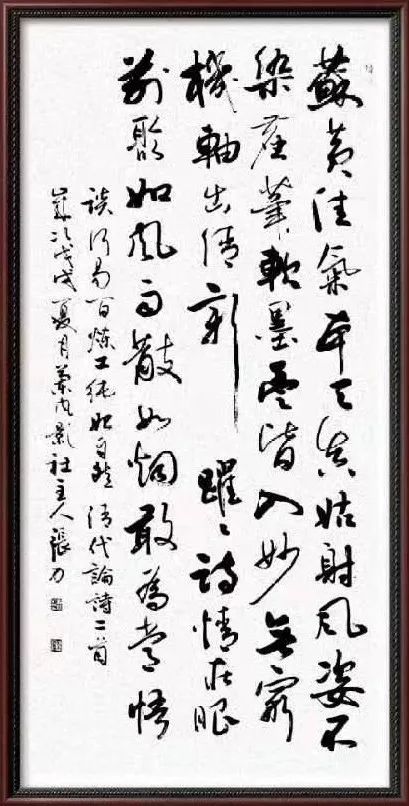 蘇黄佳氣本天真姑射風姿不
染塵筆軟墨豐皆入妙無窮
機軸出清新 躍〻詩情在眼
前聚如風雨散如烟敢為常語
談何易百煉工純始自然 清代論詩二首
歲次戊戌夏月影社主人張力